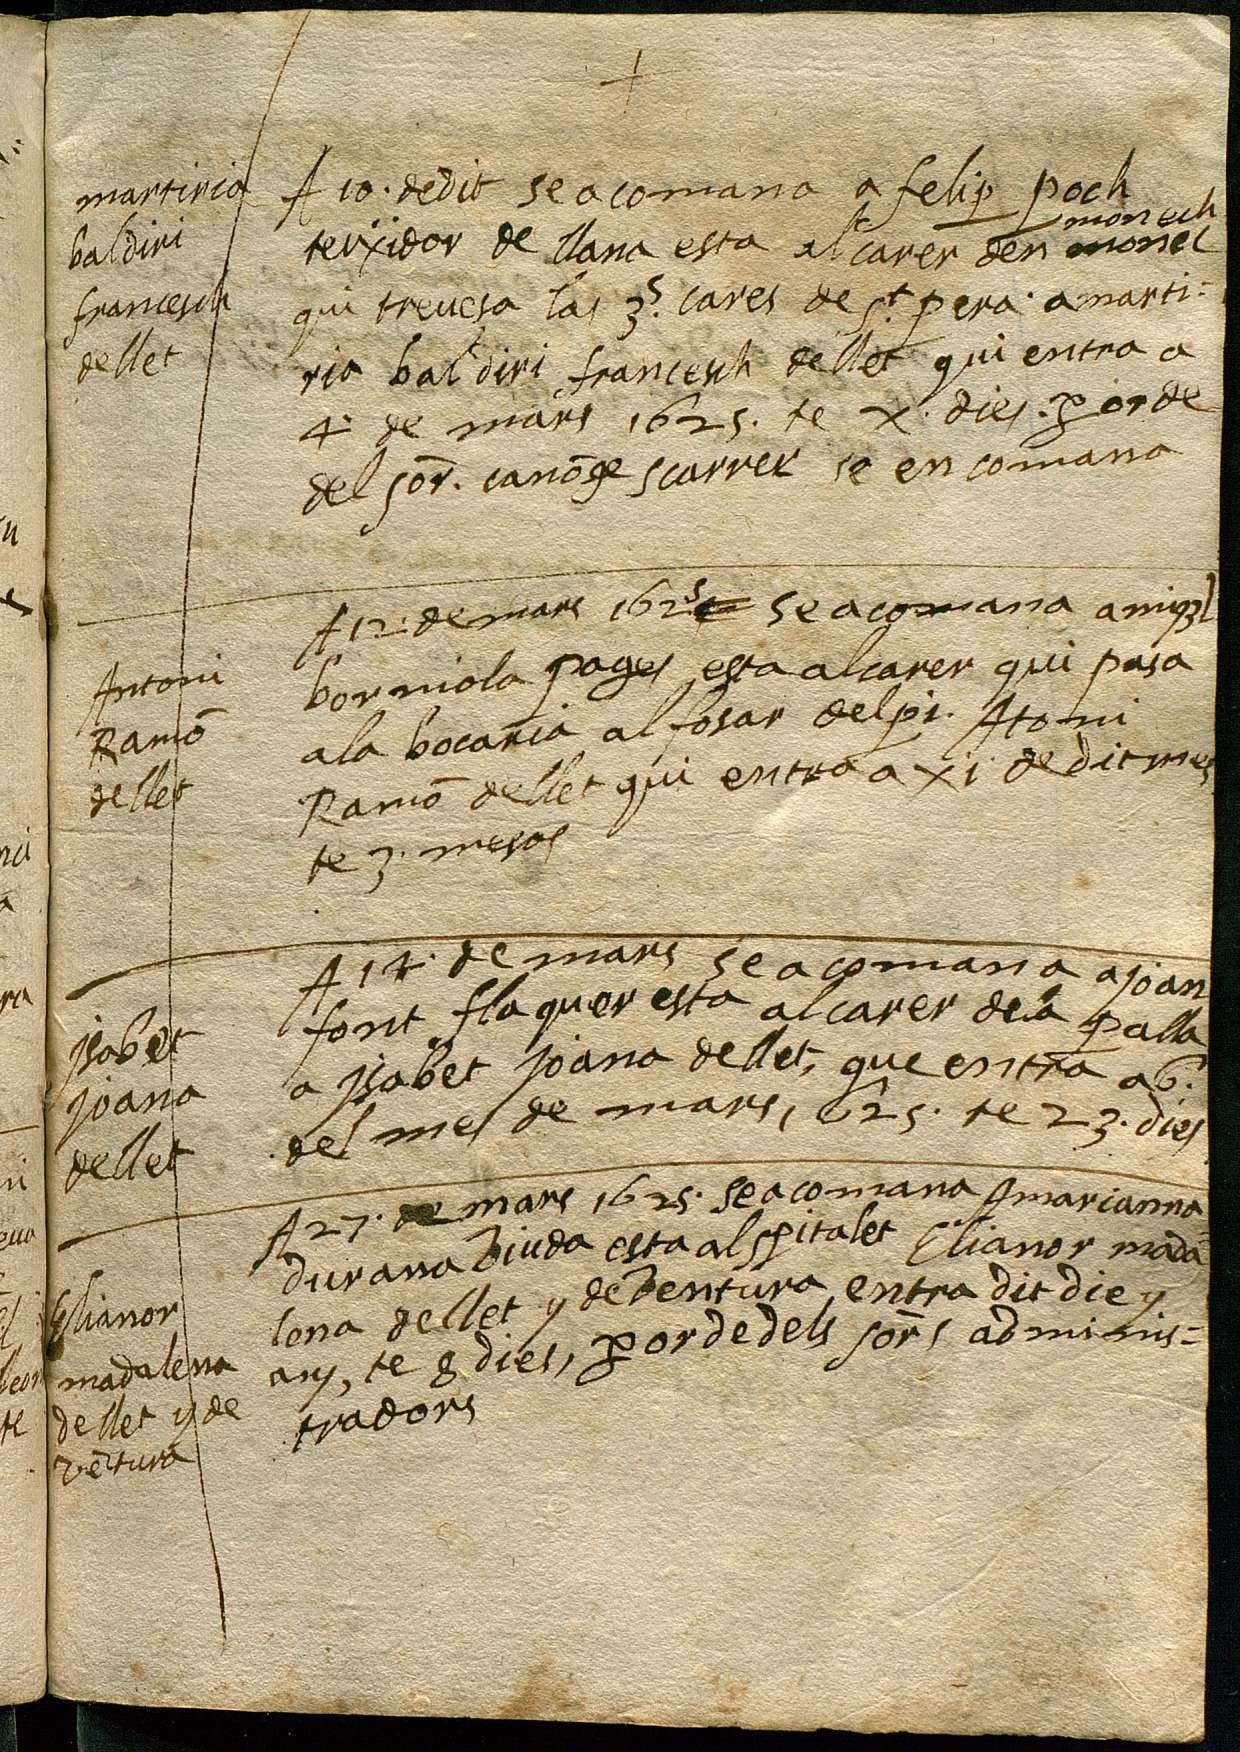 martiria
baldiri
francesch
de llet
A 10. de dit se acomana a felip poch
teixidor de llana esta al carer den monech
qui trevesa las 3.s cares de s.t pera. a marti=
ria baldiri francesch de llet qui entra a
4. de mars 1625. te x. dies. p orde
del sor. canõge scarrer se encomana
Antoni
Ramõ
de llet
A 12. de mars 1625 se acomana a miql
borniola pages esta al carer qui pasa
a la bocaria al fosar del pi. Atoni
Ramõ de llet qui entra a xi. de dit mes
te 3. mesos
jsabet
joana
de llet
A 14. de mars se acomana a joan
font flaquer esta al carer de la palla
a jsabet joana de llet, que entra a 6.
del mes de mars, 625. te 23. dies
Elianor
madalena
de llet y de
vẽtura
A 27. de mars 1625. se acomana A marianna
durana viuda esta al spitalet Elianor mada=
lena de llet y de ventura, entra dit die y
any, te 8 dies, p orde dels sors adminis=
tradors